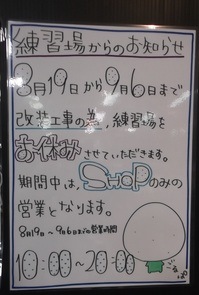 練習場からのお知らせ
8月19日から9月6日まで
改装工事の為、練習場を
お休みさせていただきます。
期間中は、SHOPのみの
営業となります。
8月19日〜9月6日までの営業時間
10:00〜20:00